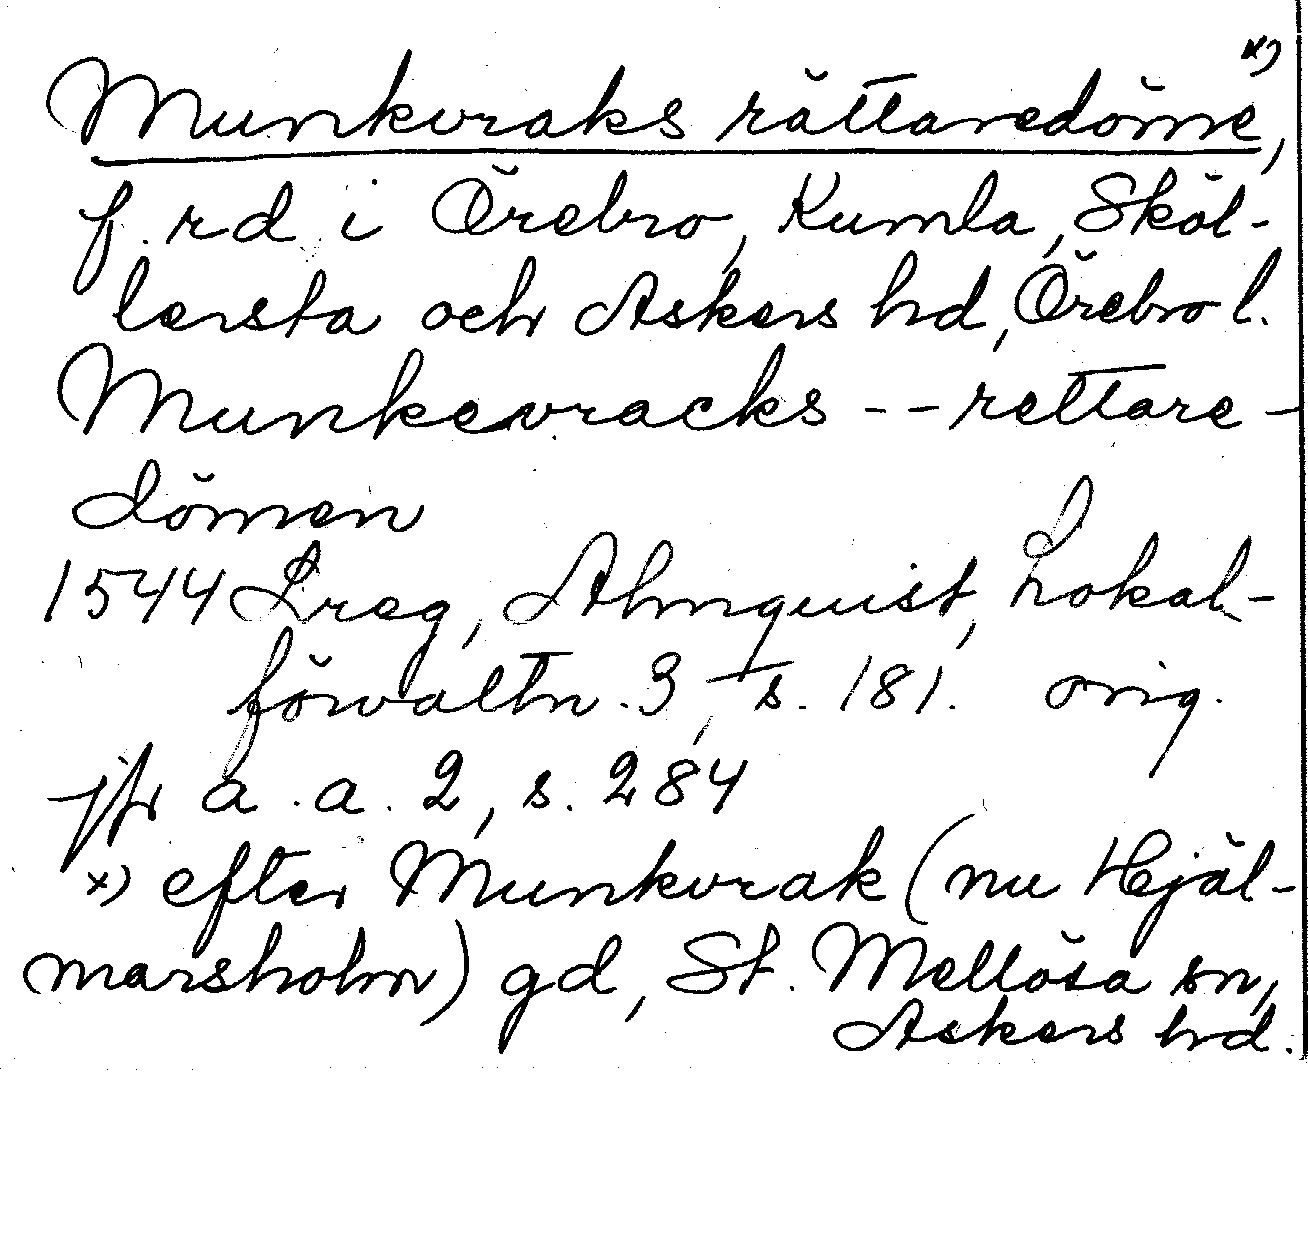 Munkvraks rättaredöme, x)
f. rd i Örebro, Kumla, Sköl-
lersta och Askers hd, Örebro l.
Munkevracks -- rettare-
dömen
1544 Lreg, Almquist, Lokal-
förvaltn. 3, s. 181. orig.
jfr a. a. 2, s. 284
x) efter Munkvrak (nu Hjäl-
marsholm) gd, St. Mellösa sn,
Askers hd.